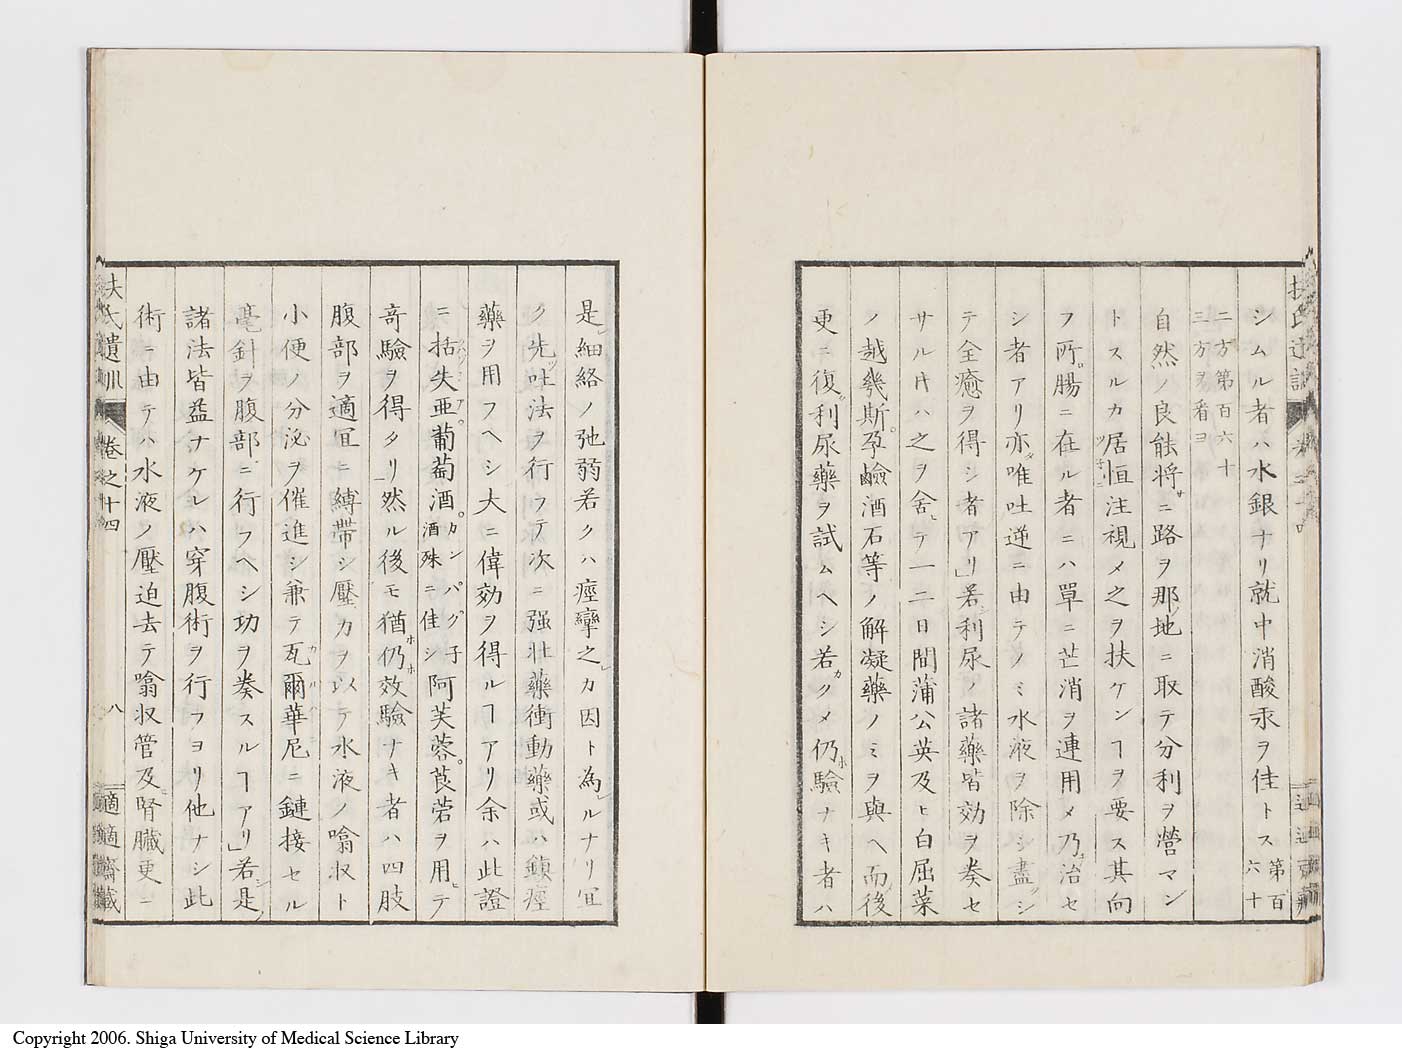 シムル者ハ水銀ナリ就中消酸汞ヲ佳トス第百六十
二方第百六十
三方ヲ看ヨ
自然ノ良能将ニ路ヲ那ノ地ニ取テ分利ヲ營マン
トスルカ居恒注視メ之ヲ扶ケンヿヲ要ス其向
フ所腸ニ在ル者ニハ單ニ芒消ヲ連用メ乃治セ
シ者アリ亦唯吐逆ニ由テノミ水液ヲ除シ盡シ
テ全癒ヲ得シ者アリ」若シ利尿ノ諸藥皆効ヲ奏セ
サル𪜈ハ之ヲ舍テ一二日間蒲公英及ヒ白屈菜
ノ越幾斯孕鹼酒石等ノ解凝藥ノミヲ與ヘ而後
更ニ復利尿藥ヲ試ムヘシ若クメ仍驗ナキ者ハ
是細絡ノ弛弱若クハ痙攣之カ因ト為ルナリ宜
ク先吐法ヲ行フテ次ニ强壯藥衝動藥或ハ鎮痙
藥ヲ用フヘシ大ニ偉効ヲ得ルヿアリ余ハ此證
ニ括失亞葡萄酒カンパグ子酒殊ニ佳シ阿芙蓉莨菪ヲ用テ
奇驗ヲ得タリ」然ル後モ猶仍效驗ナキ者ハ四肢
腹部ヲ適冝ニ縛帶シ壓カヲ以テ水液ノ噏収ト
小便ノ分泌ヲ催進シ兼テ瓦爾華尼ニ鏈接セル
毫針ヲ腹部ニ行フヘシ功ヲ奏スルヿアリ」若シ是ノ
諸法皆益ナケレハ穿腹術ヲ行フヨリ他ナシ此
術ニ由テハ水液ノ壓迫去テ噏収管及ヒ腎臟更ニ
扶氏遺訓 卷之十四 八 適適齋藏